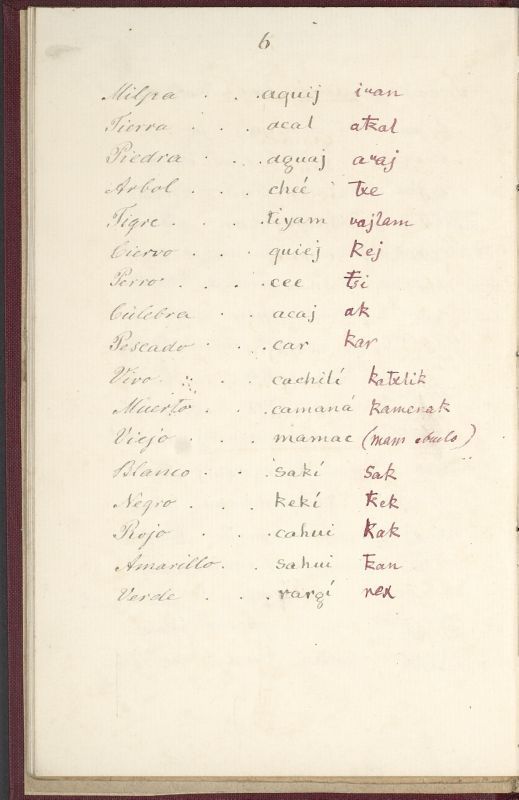 6
Milpa . . . aquij iuan
Tierra . . . acal aŧkal
Piedra . . . aguaj auaj
Arbol . . . cheé txe
Tigre . . . tiyam vajlam
Ciervo . . . quiej kej
Perro . . . cee tsi
Culebra . . . acaj ak
Pescado . . . car kar
Vivo . . . cachilí katxlik
Muerto . . . camaná kamenak
Viejo . . . mamae (mam abuelo)
Blanco . . . sakí sak
Negro . . . kekí kek
Rojo . . . cahui kak
Amarillo . . . sahui kan
Verde . . . rargí rex